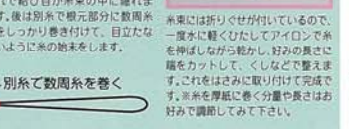 れで結び目が糸束の中に隠れま
す。後は別糸で根元部分に数周糸
をしっかり巻き付けて、目立たな
いように糸の始末をします。
別糸で数周糸を巻く
糸束には折りぐせが付いているので、
一度水に軽くひたしてアイロンで糸
を伸ばしながら乾かし、好みの長さに
端をカットして、くしなどで整えま
す。これをはさみに取り付けて完成で
す。※糸を厚紙に巻く分量や長さはお
好みで調節してみて下さい。